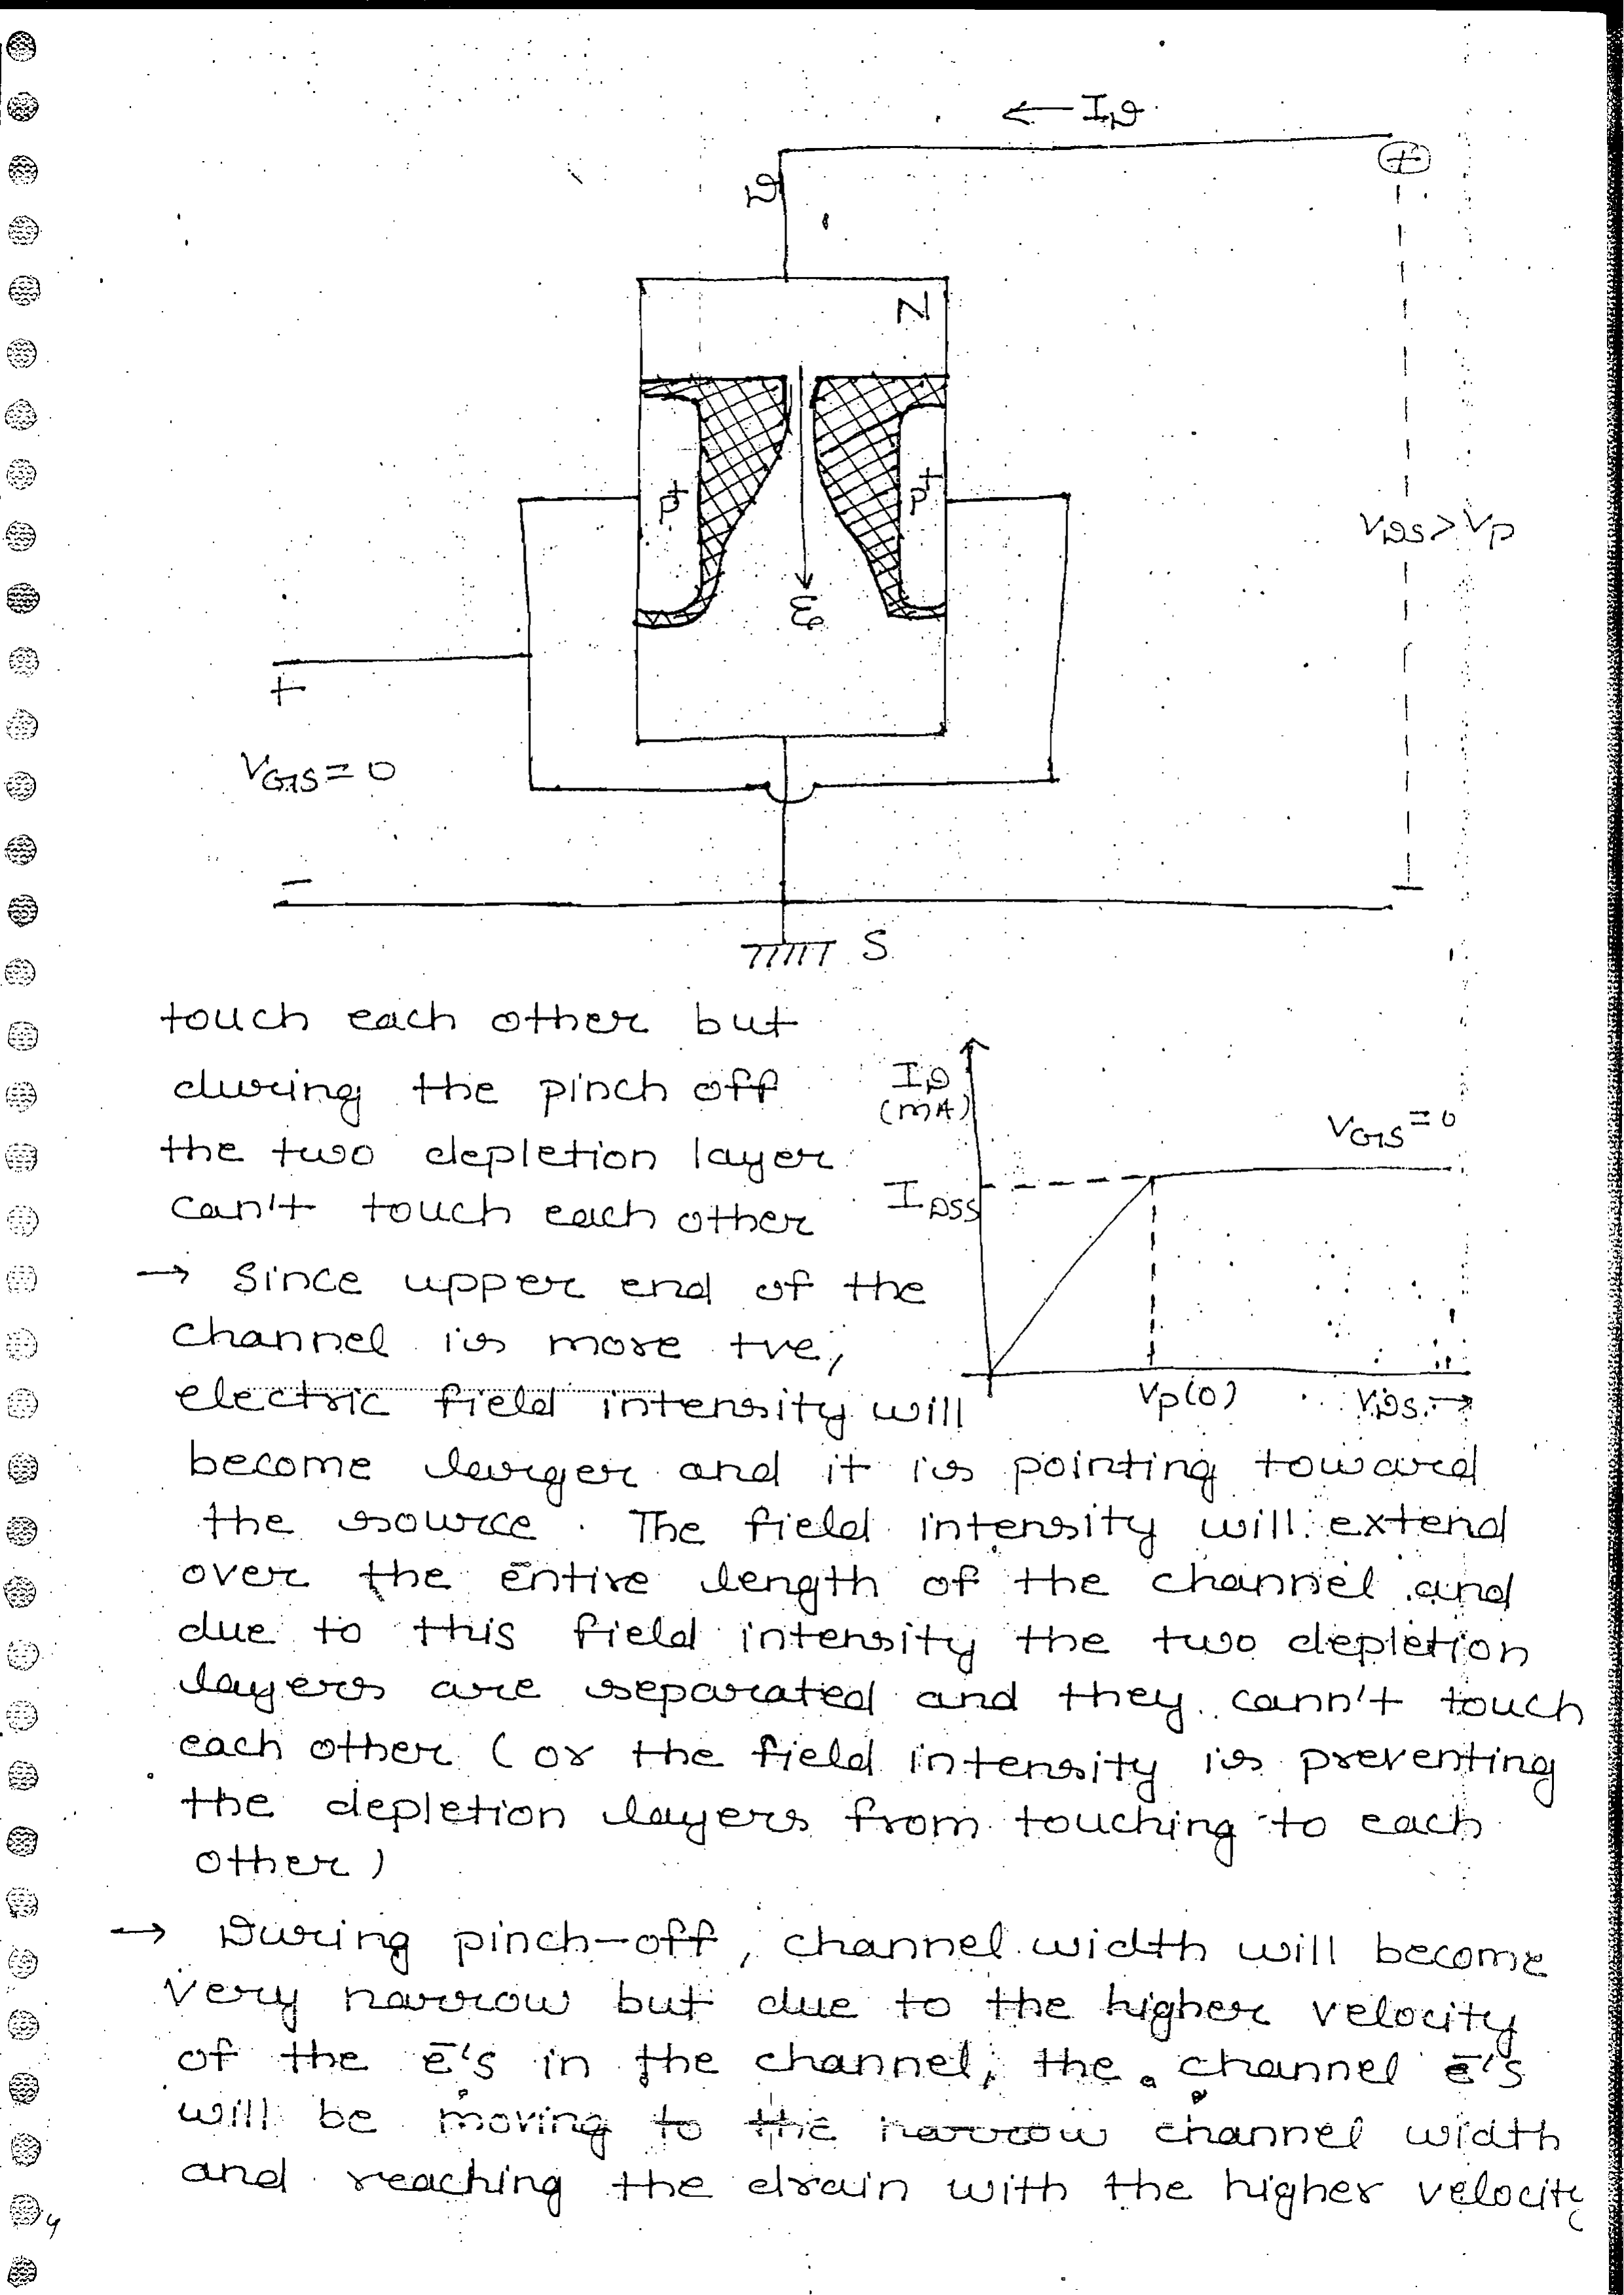 ← I_D
D
+
N
P+
P+
V_DS > V_P
ε
+
V_GS = 0
−
S
touch each other but
during the pinch off
the two depletion layer
can't touch each other
I_D
(mA)
V_GS = 0
I_DSS
V_P(0)
V_DS →
→ Since upper end of the
channel is more +ve,
electric field intensity will
become larger and it is pointing toward
the source. The field intensity will extend
over the entire length of the channel and
due to this field intensity the two depletion
layers are separated and they cann't touch
each other (or the field intensity is preventing
the depletion layers from touching to each
other)
→ During pinch-off, channel width will become
very narrow but due to the higher velocity
of the ē's in the channel, the channel ē's
will be moving to the narrow channel width
and reaching the drain with the higher velocity